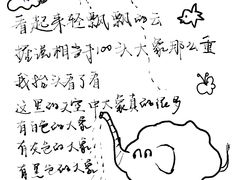 看起来轻飘飘的云
据说相当于100头大象那么重
我抬头看了看
这里的天空中大象真的还多
有白色的大象
有灰色的大象
有黑色的大象